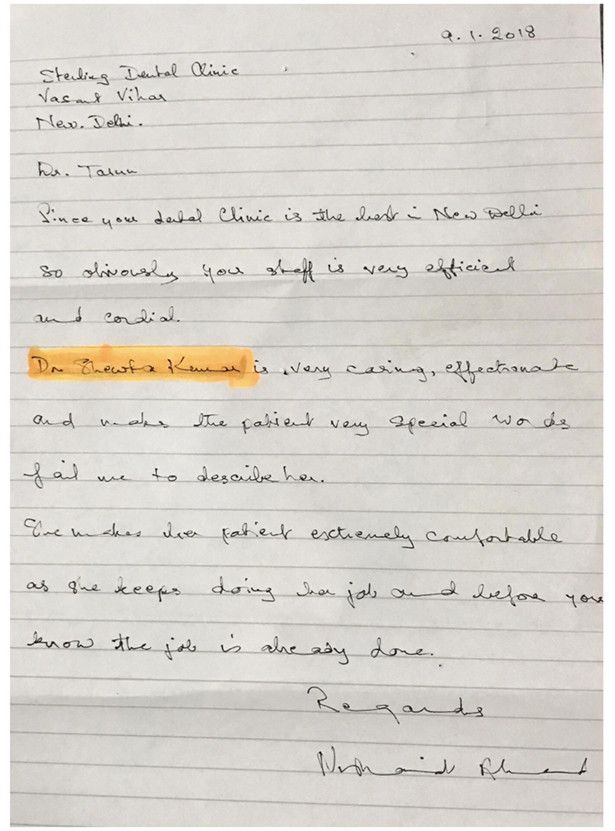 9.1.2018
Sterling Dental Clinic
Vasant Vihar
New. Delhi.
Dr. Tarun
Since your dental Clinic is the best in New Delhi
so obviously your staff is very efficient
and cordial.
Dr Shewta Kumar is very caring, effectionate
and makes the patient very special words
fail me to describe her.
She makes her patient extremely comfortable
as she keeps doing her job and before you
know the job is already done.
Regards